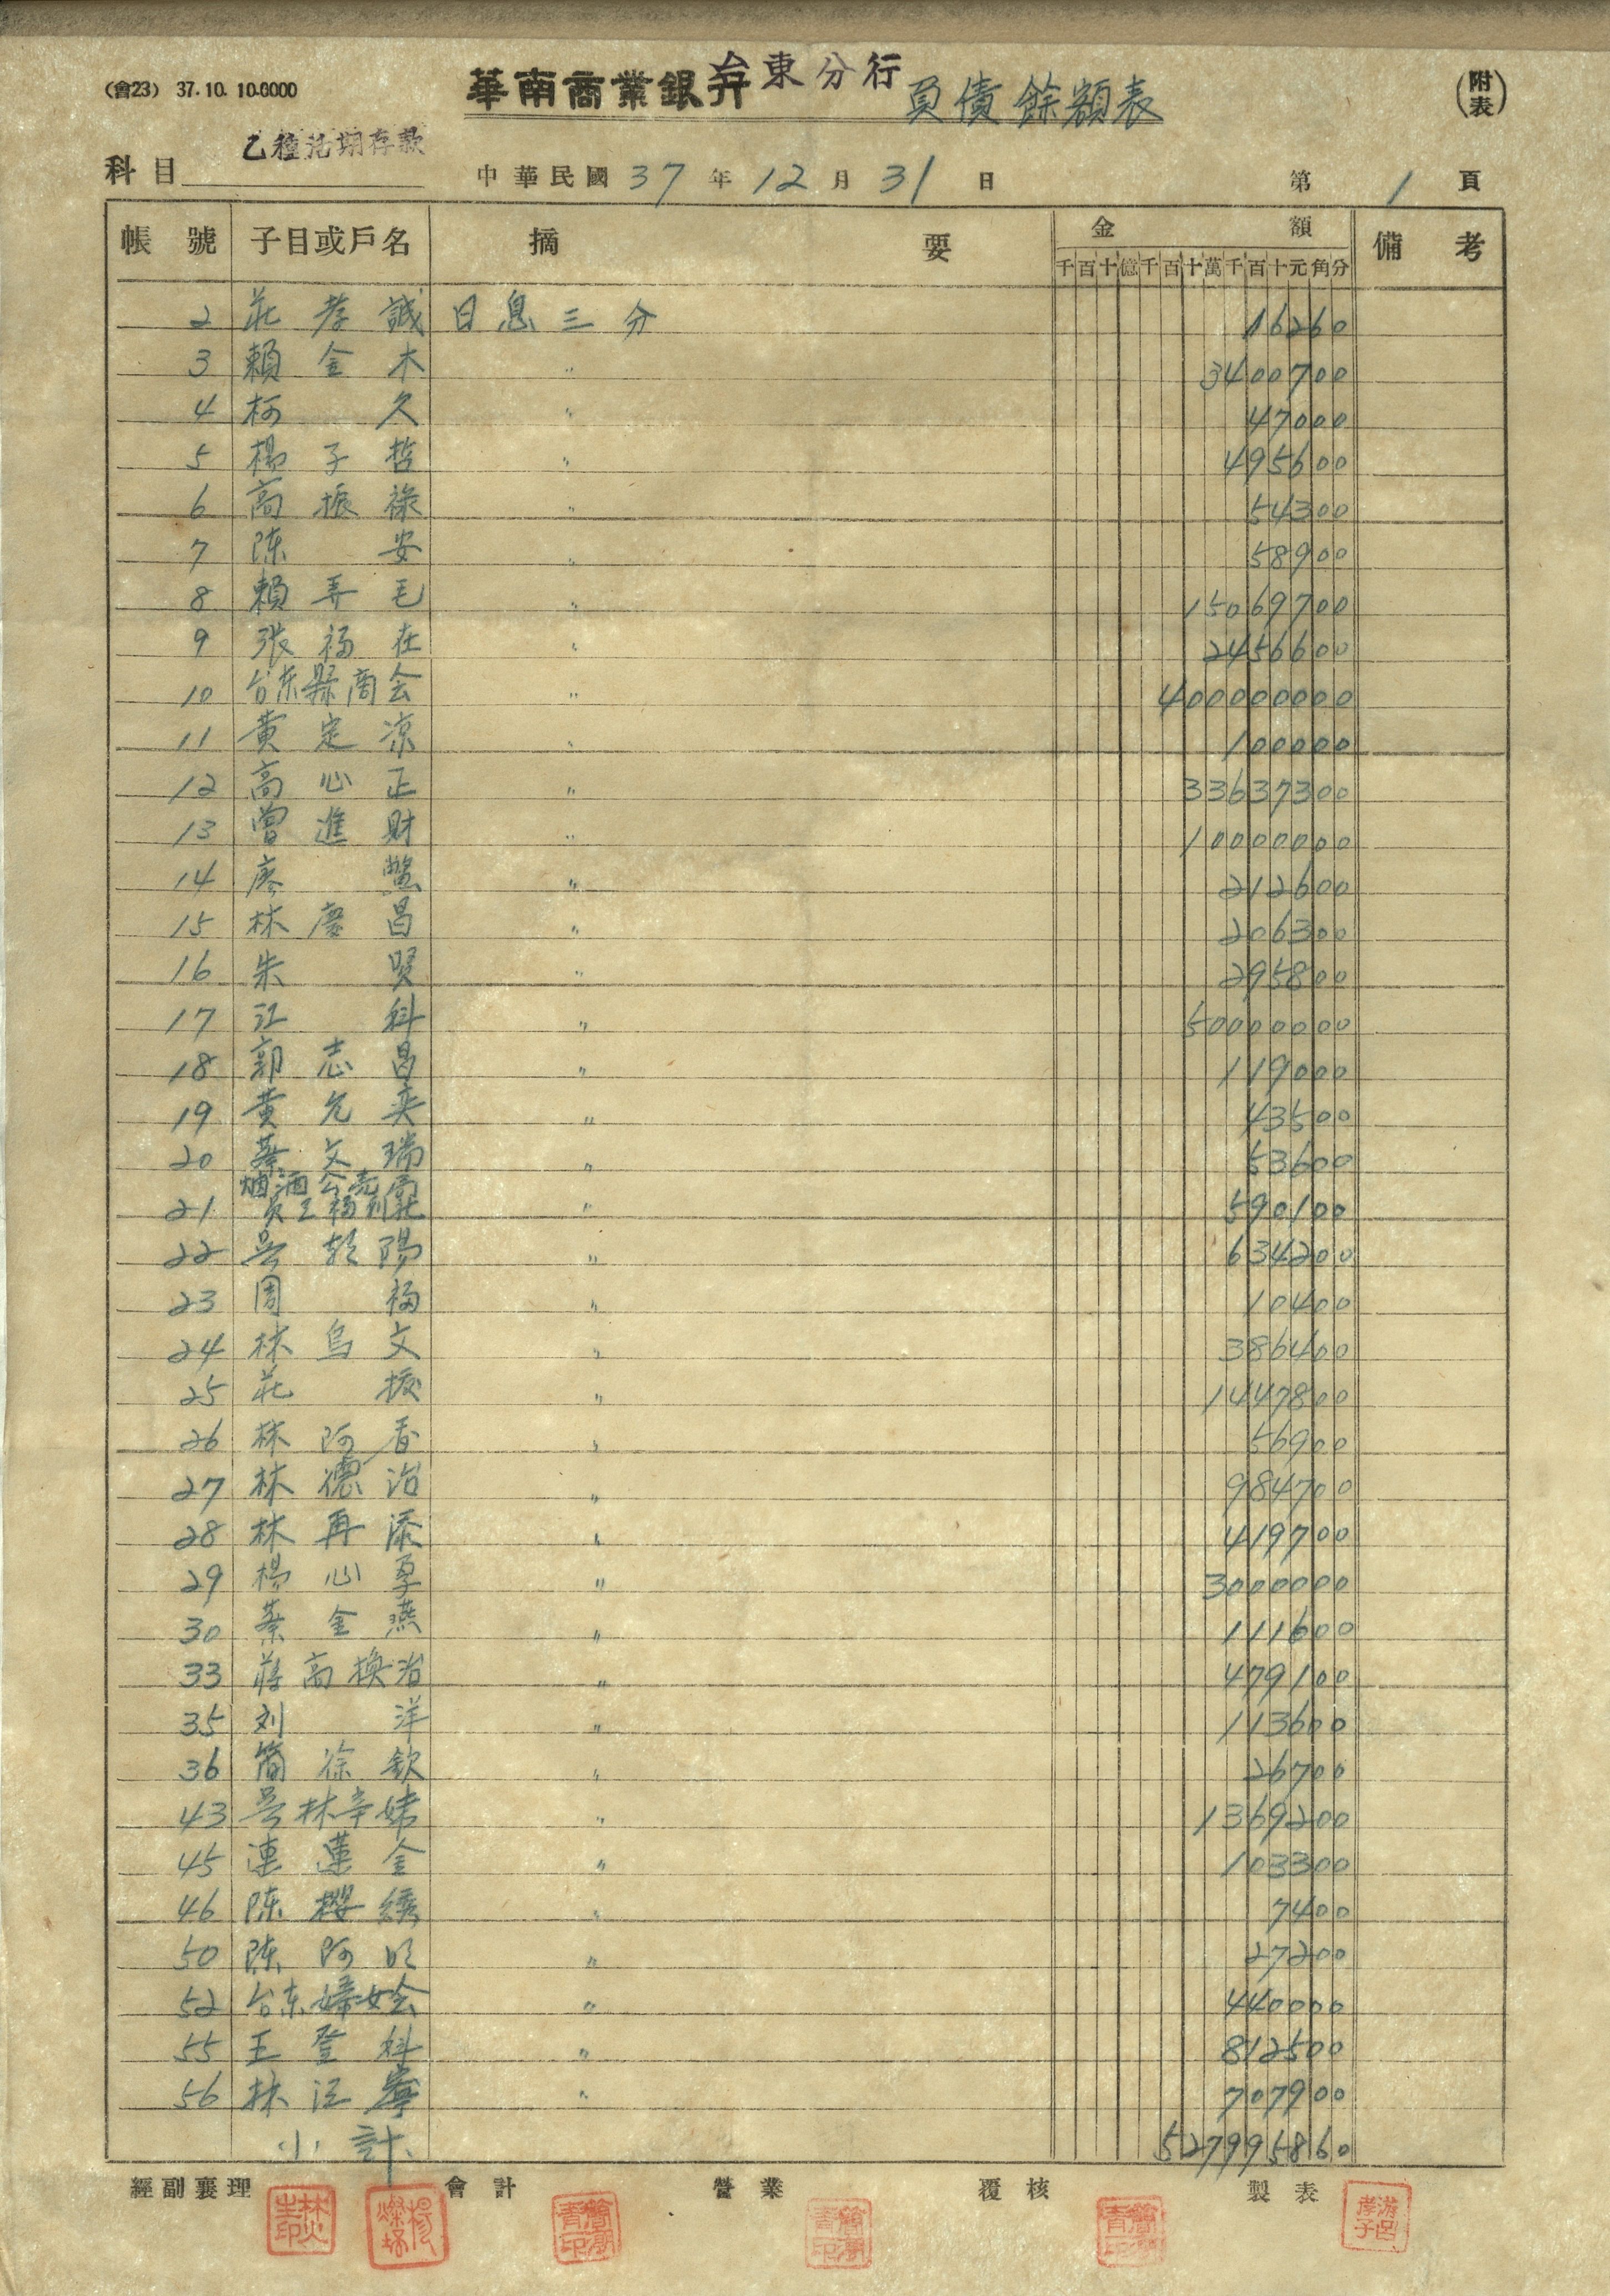 (會23) 37.10.10.0000
華南商業銀行台東分行 負債餘額表
(附表)
科目 乙種活期存款
中華民國 37 年 12 月 31 日 第 1 頁
帳號 子目或戶名 摘要 金額 備考
千百十億千百十萬千百十元角分
2 莊孝誠 日息三分 16260
3 賴金木 〃 3400700
4 柯久 〃 47000
5 楊子哲 〃 495600
6 高振祿 〃 54300
7 陈安 〃 58900
8 賴弄毛 〃 15069700
9 張福在 〃 2456600
10 台东縣商会 〃 400000000
11 黃定凉 〃 100000
12 高心正 〃 33637300
13 曾進財 〃 10000000
14 廖鱉 〃 212600
15 林慶昌 〃 206300
16 朱賢 〃 295800
17 江科 〃 50000000
18 郭志昌 〃 119000
19 黃允奕 〃 43500
20 蔡文瑞 〃 53600
烟酒公壳局
21 員工福利社 〃 590100
22 吳朝陽 〃 634200
23 周福 〃 10400
24 林烏文 〃 386400
25 莊 〃 1447800
26 林阿春 〃 56900
27 林德治 〃 984700
28 林再添 〃 419700
29 楊心 〃 3000000
30 蔡金燕 〃 111600
33 蔣高換治 〃 479100
35 刘洋 〃 113600
36 簡徐欽 〃 26700
43 吳林辛姥 〃 1369200
45 連蓮金 〃 103300
46 陈櫻綉 〃 7400
50 陈阿旺 〃 27200
52 台东婦女会 〃 440000
55 王登科 〃 812500
56 林江 〃 707900
小計 527995860
經副襄理 會計 營業 覆核 製表